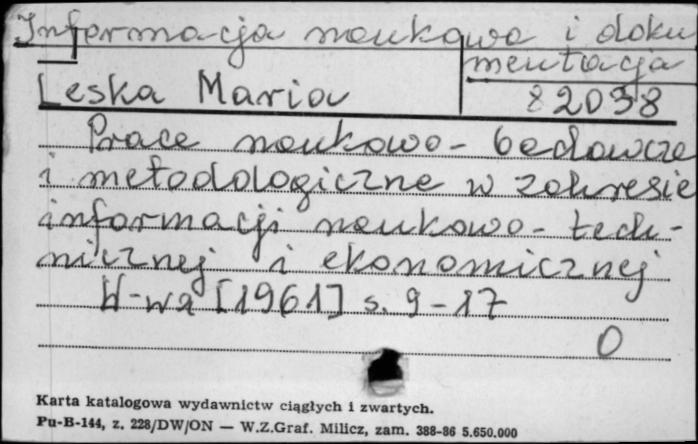 Informacja naukowa i doku
mentacja
Leska Maria 82038
Prace naukowo-badawcze
i metodologiczne w zakresie
informacji naukowo-tech-
nicznej i ekonomicznej
W-wa [1961] s. 9-17
O
Karta katalogowa wydawnictw ciągłych i zwartych.
Pu-B-144, z. 228/DW/ON — W.Z.Graf. Milicz, zam. 388-86 5.650.000